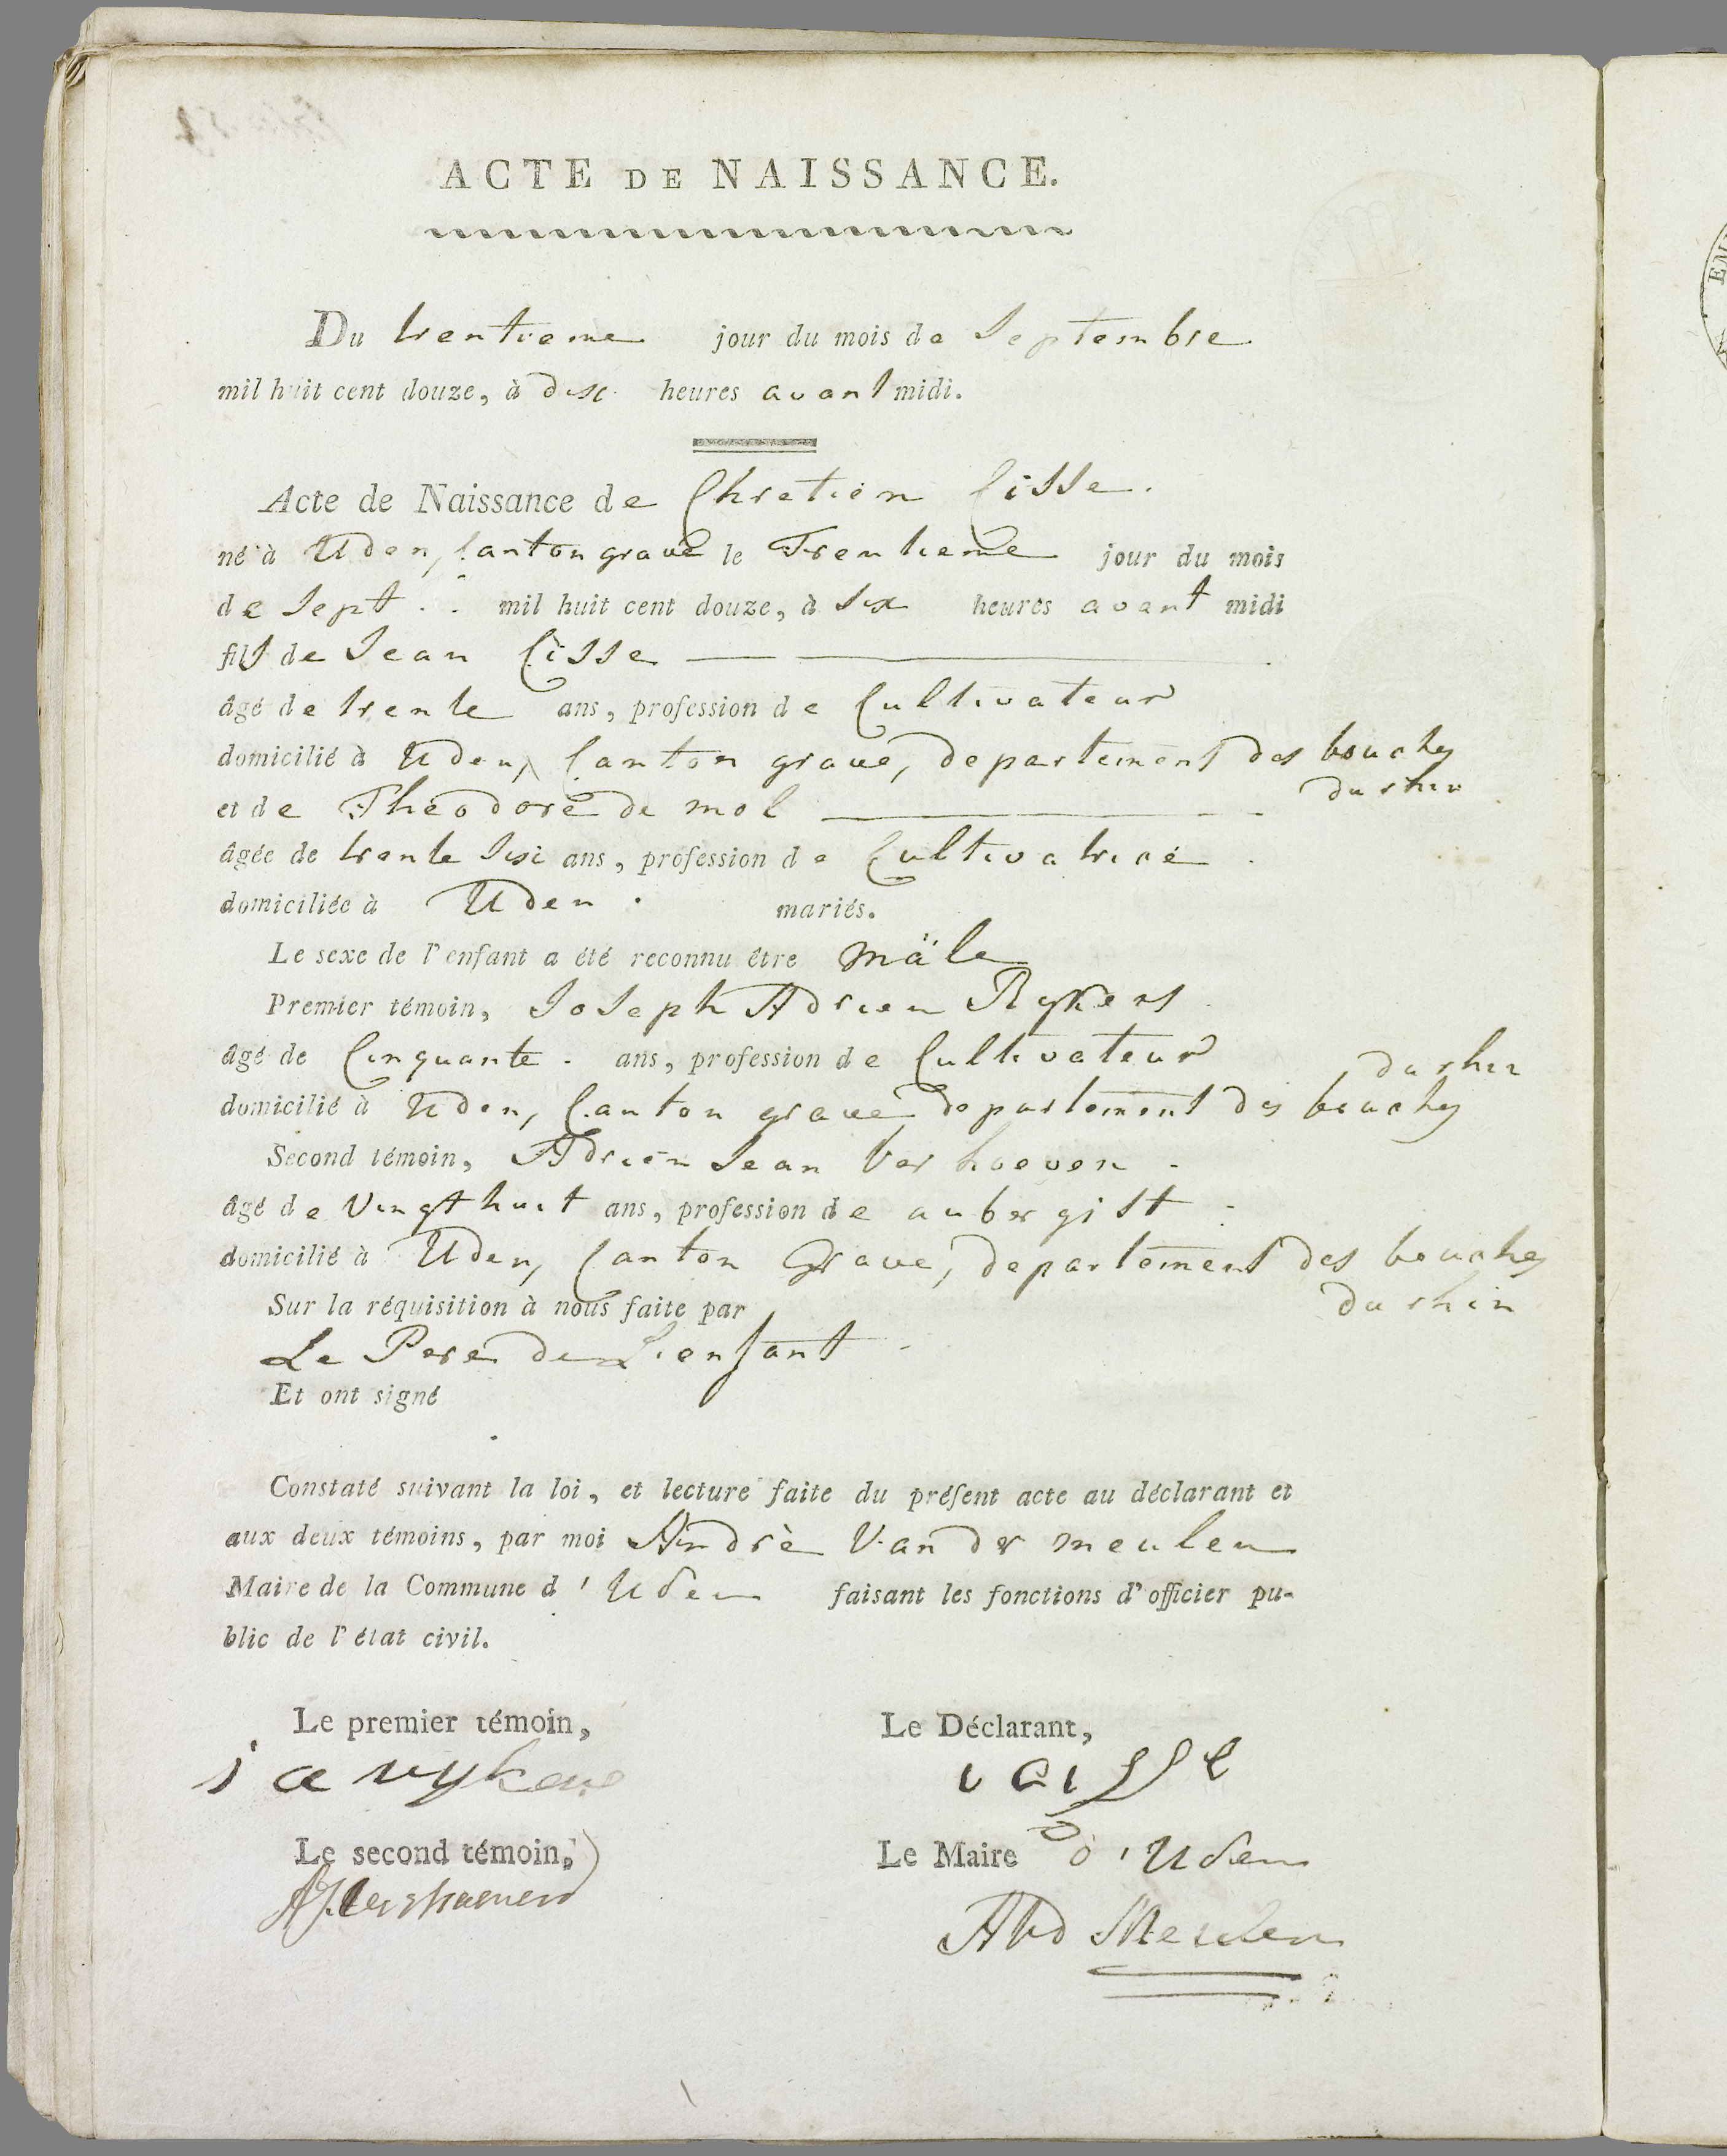 ACTE DE NAISSANCE.
Du trentieme jour du mois de Septembre
mil huit cent douze, à dix heures avant midi.
Acte de Naissance de Chretien Cisse.
né à Uden, Canton grave le Trentieme jour du mois
de Sept. mil huit cent douze, à Six heures avant midi
fils de Jean Cisse
âgé de trente ans, profession de Cultivateur
domicilié à Uden, Canton grave, departement des bouches
du rhin
et de Théodore de mol
âgée de trente Six ans, profession de Cultivatrice
domiciliée à Uden. mariés.
Le sexe de l'enfant a été reconnu être mâle
Premier témoin, Joseph Adrien Rykers
âgé de Cinquante. ans, profession de Cultivateur
du rhin
domicilié à Uden, Canton grave departement des bouches
Second témoin, Adrien Jean Verhoeven
âgé de Vingt huit ans, profession de aubergist
domicilié à Uden, Canton Grave, departement des bouches
du rhin
Sur la réquisition à nous faite par
Le Pere de L'enfant
Et ont signé
Constaté suivant la loi, et lecture faite du présent acte au déclarant et
aux deux témoins, par moi Andrè Van der meulen
Maire de la Commune d'Uden faisant les fonctions d'officier pu-
blic de l'état civil.
Le premier témoin, Le Déclarant,
j a rykers
Le second témoin, Le Maire d'Uden
AJ Verhoeven
AVD Meulen